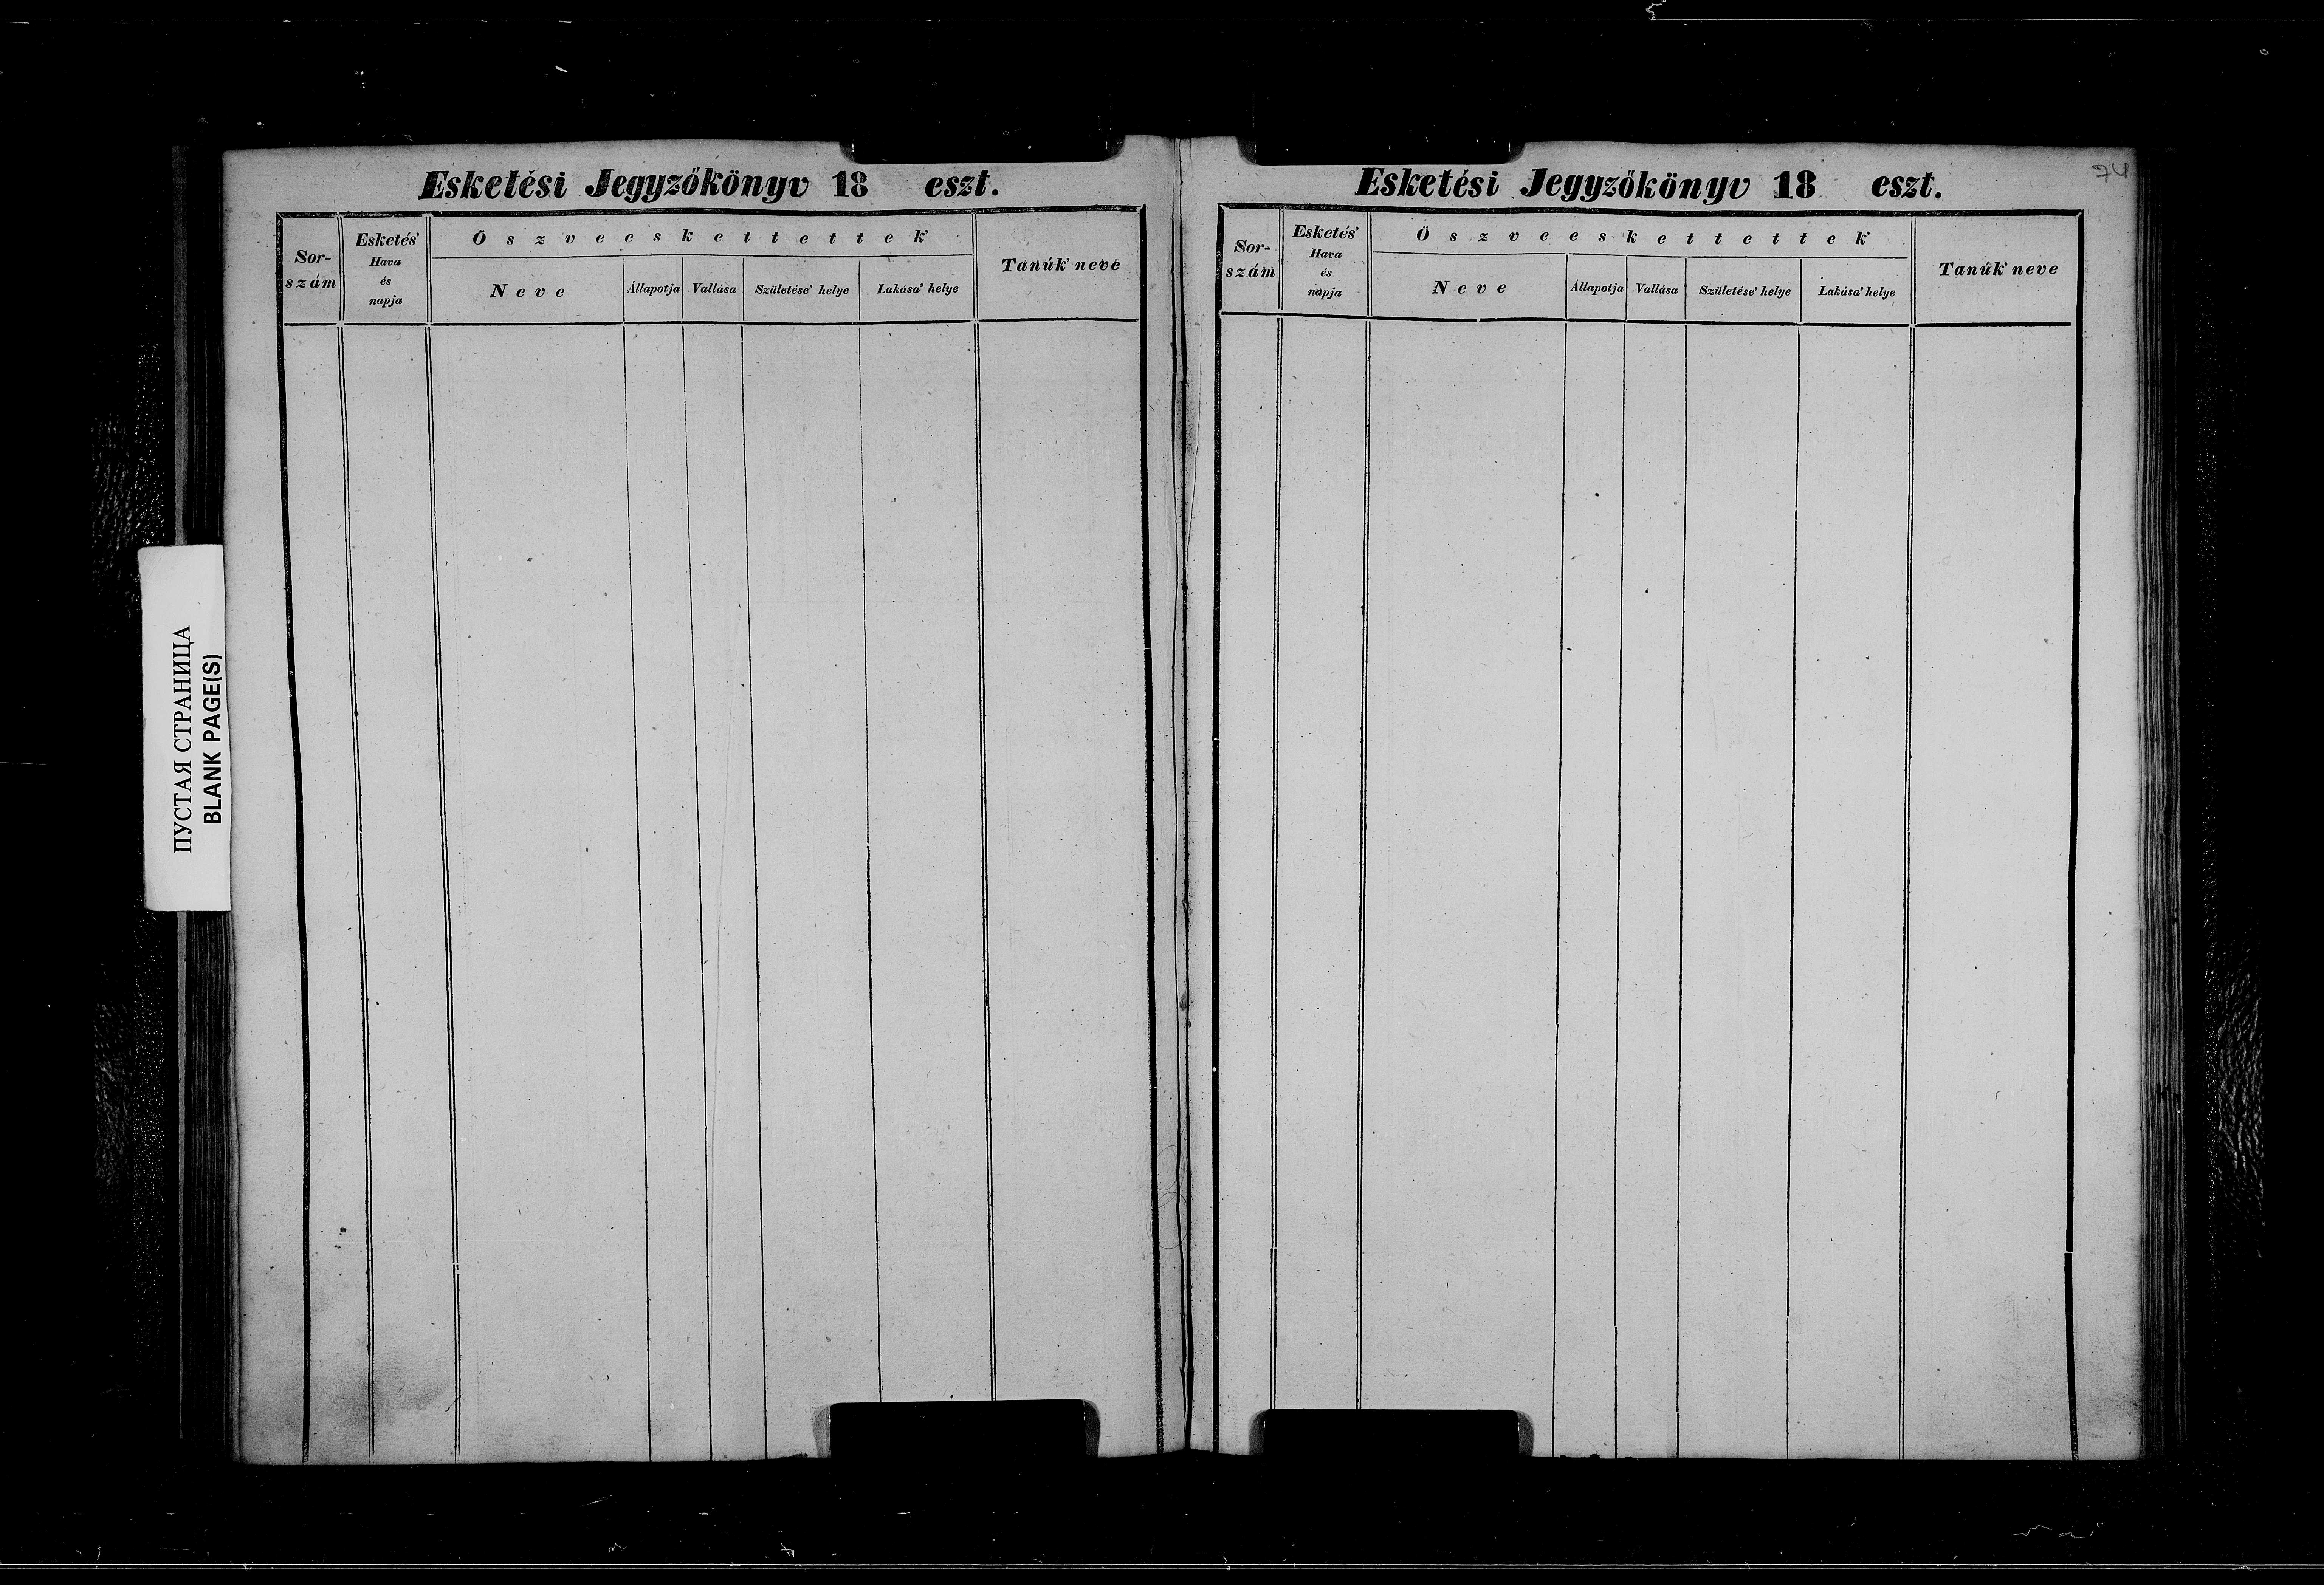 Esketési Jegyzőkönyv 18 eszt.
Sor-
szám
Esketés'
Hava
és
napja
Öszveeskettettek'
Neve
Állapotja
Vallása
Születése' helye
Lakása' helye
Tanúk' neve
Esketési Jegyzőkönyv 18 eszt.
74
Sor-
szám
Esketés'
Hava
és
napja
Öszveeskettettek'
Neve
Állapotja
Vallása
Születése' helye
Lakása' helye
Tanúk' neve
ПУСТАЯ СТРАНИЦА
BLANK PAGE(S)